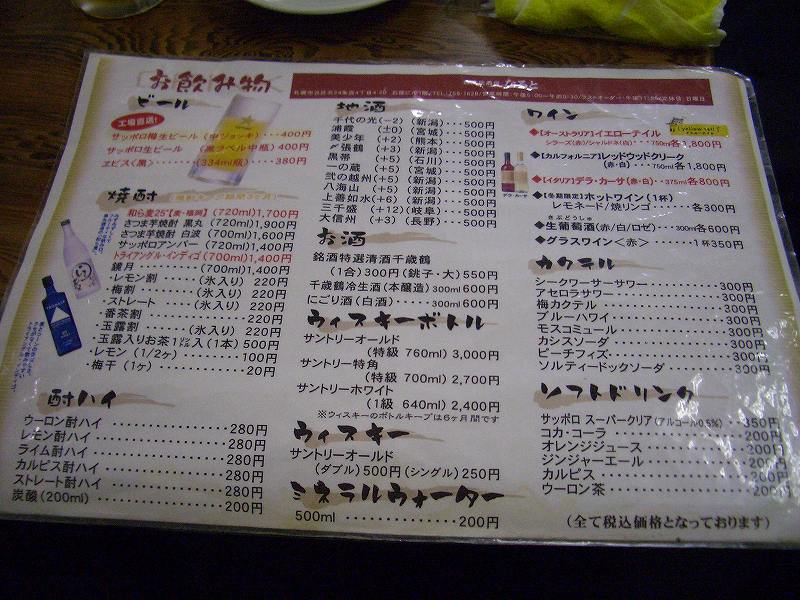 お飲み物
ビール
工場直送!
サッポロ樽生ビール (中ジョッキ)・・・400円
サッポロ生ビール (黒ラベル中瓶)・・・400円
ヱビス(黒)・・・・・・・(334ml瓶)・・・・380円
焼酎
和ら麦25°【麦・福岡】(720ml)1,700円
さつま芋焼酎 黒丸 (720ml)1,900円
さつま芋焼酎 白波 (700ml)1,600円
サッポロアンバー (720ml)1,400円
トライアングル・インディゴ(700ml)1,400円
鏡月・・・・・・・・・(700ml)1,400円
・レモン割・・・・(氷入り) 220円
・梅割・・・・・・・(氷入り) 220円
・ストレート・・・(氷入り) 220円
・番茶割・・・・・・・・・・・・・・220円
・玉露割・・・・・・(氷入り) 220円
・玉露入りお茶1㍑入(1本)500円
・レモン(1/2ヶ)・・・・・・・・・100円
・梅干(1ヶ)・・・・・・・・・・・・・20円
酎ハイ
ウーロン酎ハイ・・・・・・・・・・・280円
レモン酎ハイ・・・・・・・・・・・・280円
ライム酎ハイ・・・・・・・・・・・・280円
カルピス酎ハイ・・・・・・・・・・・280円
ストレート酎ハイ・・・・・・・・・・280円
炭酸(200ml)・・・・・・・・・・・200円
地酒
千代の光(−2) (新潟)・・・500円
浦霞 (±0) (宮城)・・・500円
美少年 (+2) (熊本)・・・500円
〆張鶴 (+3) (新潟)・・・500円
黒帯 (+5) (石川)・・・500円
一の蔵 (+5) (宮城)・・・500円
弐の越州(+5) (新潟)・・・500円
八海山 (+5) (新潟)・・・500円
上善如水(+6) (新潟)・・・500円
三千盛 (+12)(岐阜)・・・500円
大信州 (+3) (長野)・・・500円
お酒
銘酒特選清酒千歳鶴
(1合)300円(銚子・大)550円
千歳鶴冷生酒(本醸造)300ml600円
にごり酒(白酒)・・・・・300ml600円
ウィスキーボトル
サントリーオールド
(特級 760ml)3,000円
サントリー特角
(特級 700ml)2,700円
サントリーホワイト
(1級 640ml)2,400円
※ウィスキーのボトルキープは6ヶ月間です
ウィスキー
サントリーオールド
(ダブル)500円(シングル)250円
ミネラルウォーター
500ml ・・・・・・・・・・・・200円
ワイン
◆【オーストラリア】イエローテイル
シラーズ(赤)/シャルドネ(白)・・・・750ml各1,800円
◆【カルフォルニア】レッドウッドクリーク
(赤・白)・・・・750ml各1,800円
◆【イタリア】デラ・カーサ(赤・白)・・・375ml各800円
デラ・カーサ
◆【冬期限定】ホットワイン(1杯)
レモネード/焼リンゴ・・・・各300円
きぶどうしゅ
◆生葡萄酒(赤/白/ロゼ)・・・300ml各600円
◆グラスワイン<赤>・・・・・・1杯350円
カクテル
シークワーサーサワー・・・・・・・・300円
アセロラサワー・・・・・・・・・・・300円
梅カクテル・・・・・・・・・・・・・300円
ブルーハワイ・・・・・・・・・・・・300円
モスコミュール・・・・・・・・・・・300円
カシスソーダ・・・・・・・・・・・・300円
ピーチフィズ・・・・・・・・・・・・300円
ソルティードックソーダ・・・・・・・300円
ソフトドリンク
サッポロ スーパークリア(アルコール0.5%)・・・350円
コカ・コーラ・・・・・・・・・・・・200円
オレンジジュース・・・・・・・・・・200円
ジンジャーエール・・・・・・・・・・200円
カルピス・・・・・・・・・・・・・・200円
ウーロン茶・・・・・・・・・・・・・200円
(全て税込価格となっております)